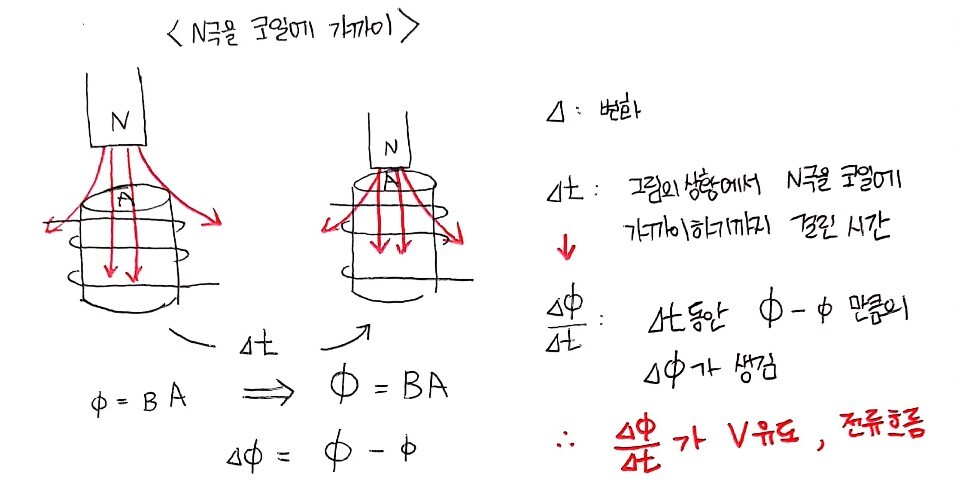 <N극을 코일에 가까이>
N
A
N
A
Δt
ϕ = BA ⟹ ϕ = BA
Δϕ = ϕ - ϕ
Δ : 변화
Δt : 그림의 상황에서 N극을 코일에
가까이하기까지 걸린 시간
↓
Δϕ/Δt : Δt동안 ϕ - ϕ 만큼의
Δϕ가 생김
∴ Δϕ/Δt 가 V유도, 전류흐름